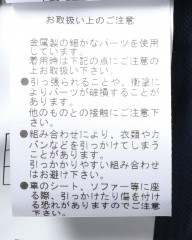 お取扱い上のご注意
金属製の細かなパーツを使用
しています。
着用時は下記の点にご注意の
上お取扱い下さい。
●引っ張られることや、衝撃に
よりパーツが破損することが
あります。
他のものとの接触にご注意下
さい。
●組み合わせにより、衣類やカ
バンなどを引っかけてしまう
ことがあります。
引っかかりやすい組み合わせ
はお避け下さい。
●車のシート、ソファー等に座
る際、引っかけたり傷を付け
る恐れがありますのでご注意
下さい。